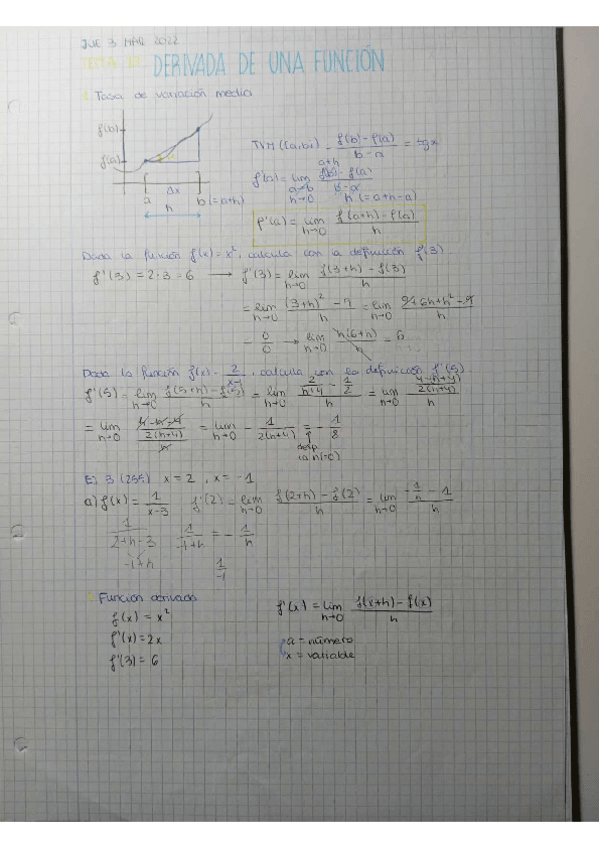 JUE 3 MAR 2022
DERIVADA DE UNA FUNCIÓN
Tasa de variación media
f(b)
f(a)
Δx
a
b (=a+h)
h
TVM ([a,b]) = f(b) - f(a) / b - a = tg α
a+h
f'(a) = lim a→b f(b) - f(a) / b - a
h→0 h (=a+h-a)
f'(a) = lim h→0 f(a+h) - f(a) / h
Dada la función f(x) = x², calcula con la definición f'(3).
f'(3) = 2·3 = 6 → f'(3) = lim h→0 f(3+h) - f(3) / h
= lim h→0 (3+h)² - 9 / h = lim h→0 9+6h+h² - 9 / h
= 0/0 → lim h→0 h(6+h) / h = 6
Dada la función f(x) = 2 / x-1, calcula con la definición f'(5).
f'(5) = lim h→0 f(5+h) - f(5) / h = lim h→0 2/h+4 - 1/2 / h = lim h→0 4-(h+4) / 2(h+4) / h
= lim h→0 4-h-4 / 2(h+4) / h = lim h→0 - 1 / 2(h+4) = - 1/8
(h=0)
Ej 3 (255) x = 2, x = -1
a) f(x) = 1 / x-3 f'(2) = lim h→0 f(2+h) - f(2) / h = lim h→0 - 1/h - 1 / h
1 / 2+h-3 1 / -1+h = - 1/h
-1+h 1/-1
Función derivada
f(x) = x² f'(x) = lim h→0 f(x+h) - f(x) / h
f'(x) = 2x a = número
f'(3) = 6 x = variable